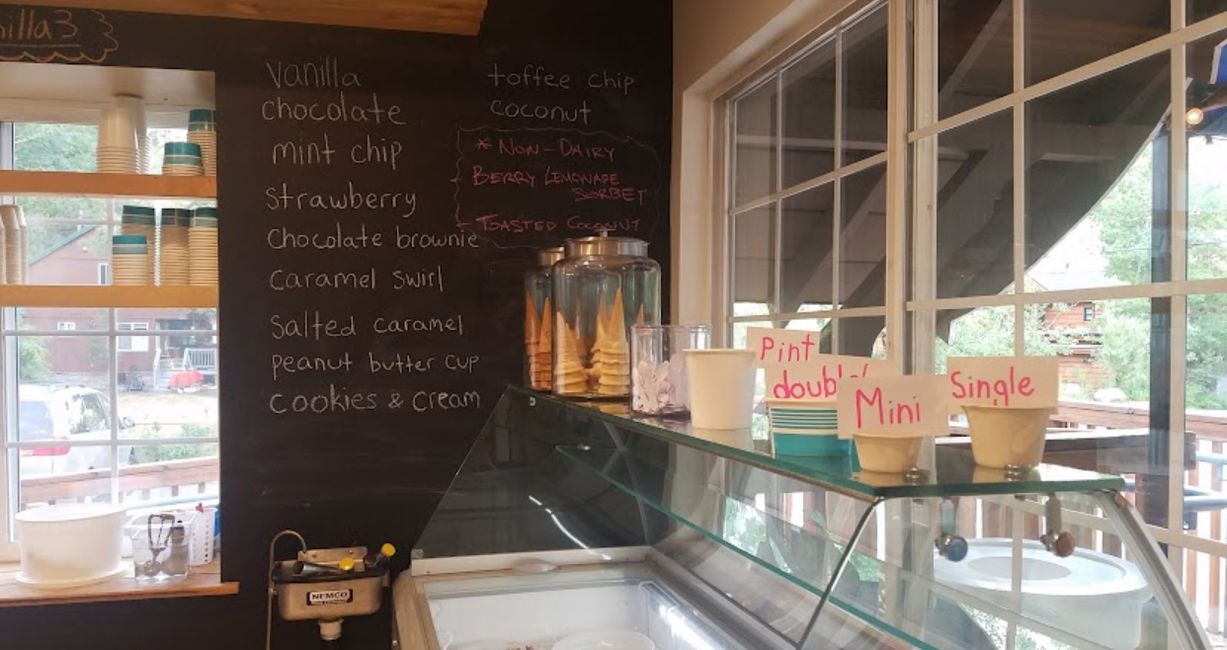 vanilla
chocolate
mint chip
strawberry
chocolate brownie
caramel swirl
salted caramel
peanut butter cup
cookies & cream
toffee chip
coconut
* NON-DAIRY
- BERRY LEMONADE
SORBET
- TOASTED COCONUT
Pint
double
Mini
Single
NEMCO